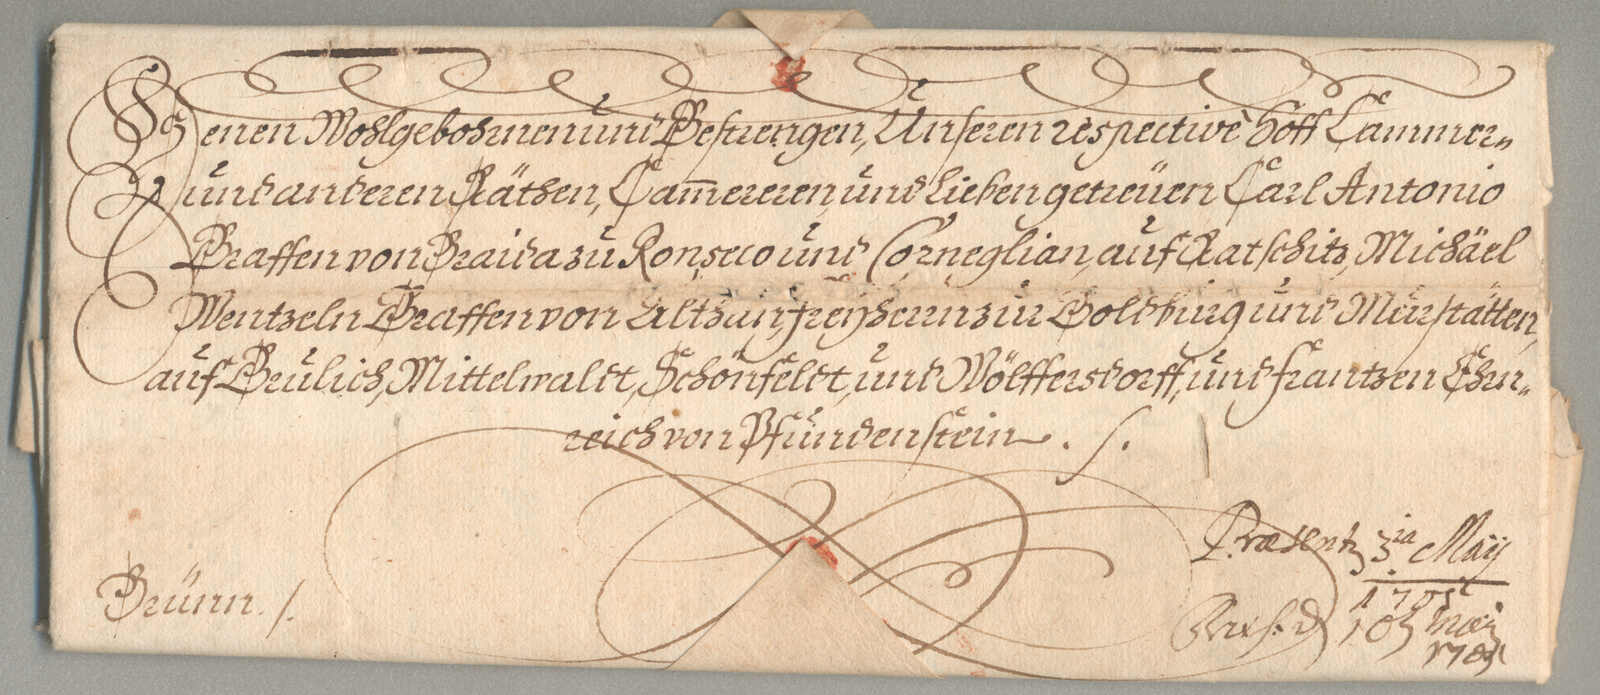 Denen Wohlgebohrnen und Gestrengen, Unseren respectivè Hoff Cammer-
und anderen Räthen, Cam̄ereren, und Lieben getreüen Carl Antonio
Graffen von Braida zu Ronseco und Corneglian, auf Ratschitz, Michäel
Wentzeln Graffen von Althan, Freyherrn zur Goldburg und Murstätten,
auf Grulich, Mittelwaldt, Schönfeldt, und Wölffersdorff, und Frantzen Ehrn-
reich von Pfundenstein ./.
Præsent 3tia Maÿ
170
Brünn ./.
10 Maÿ